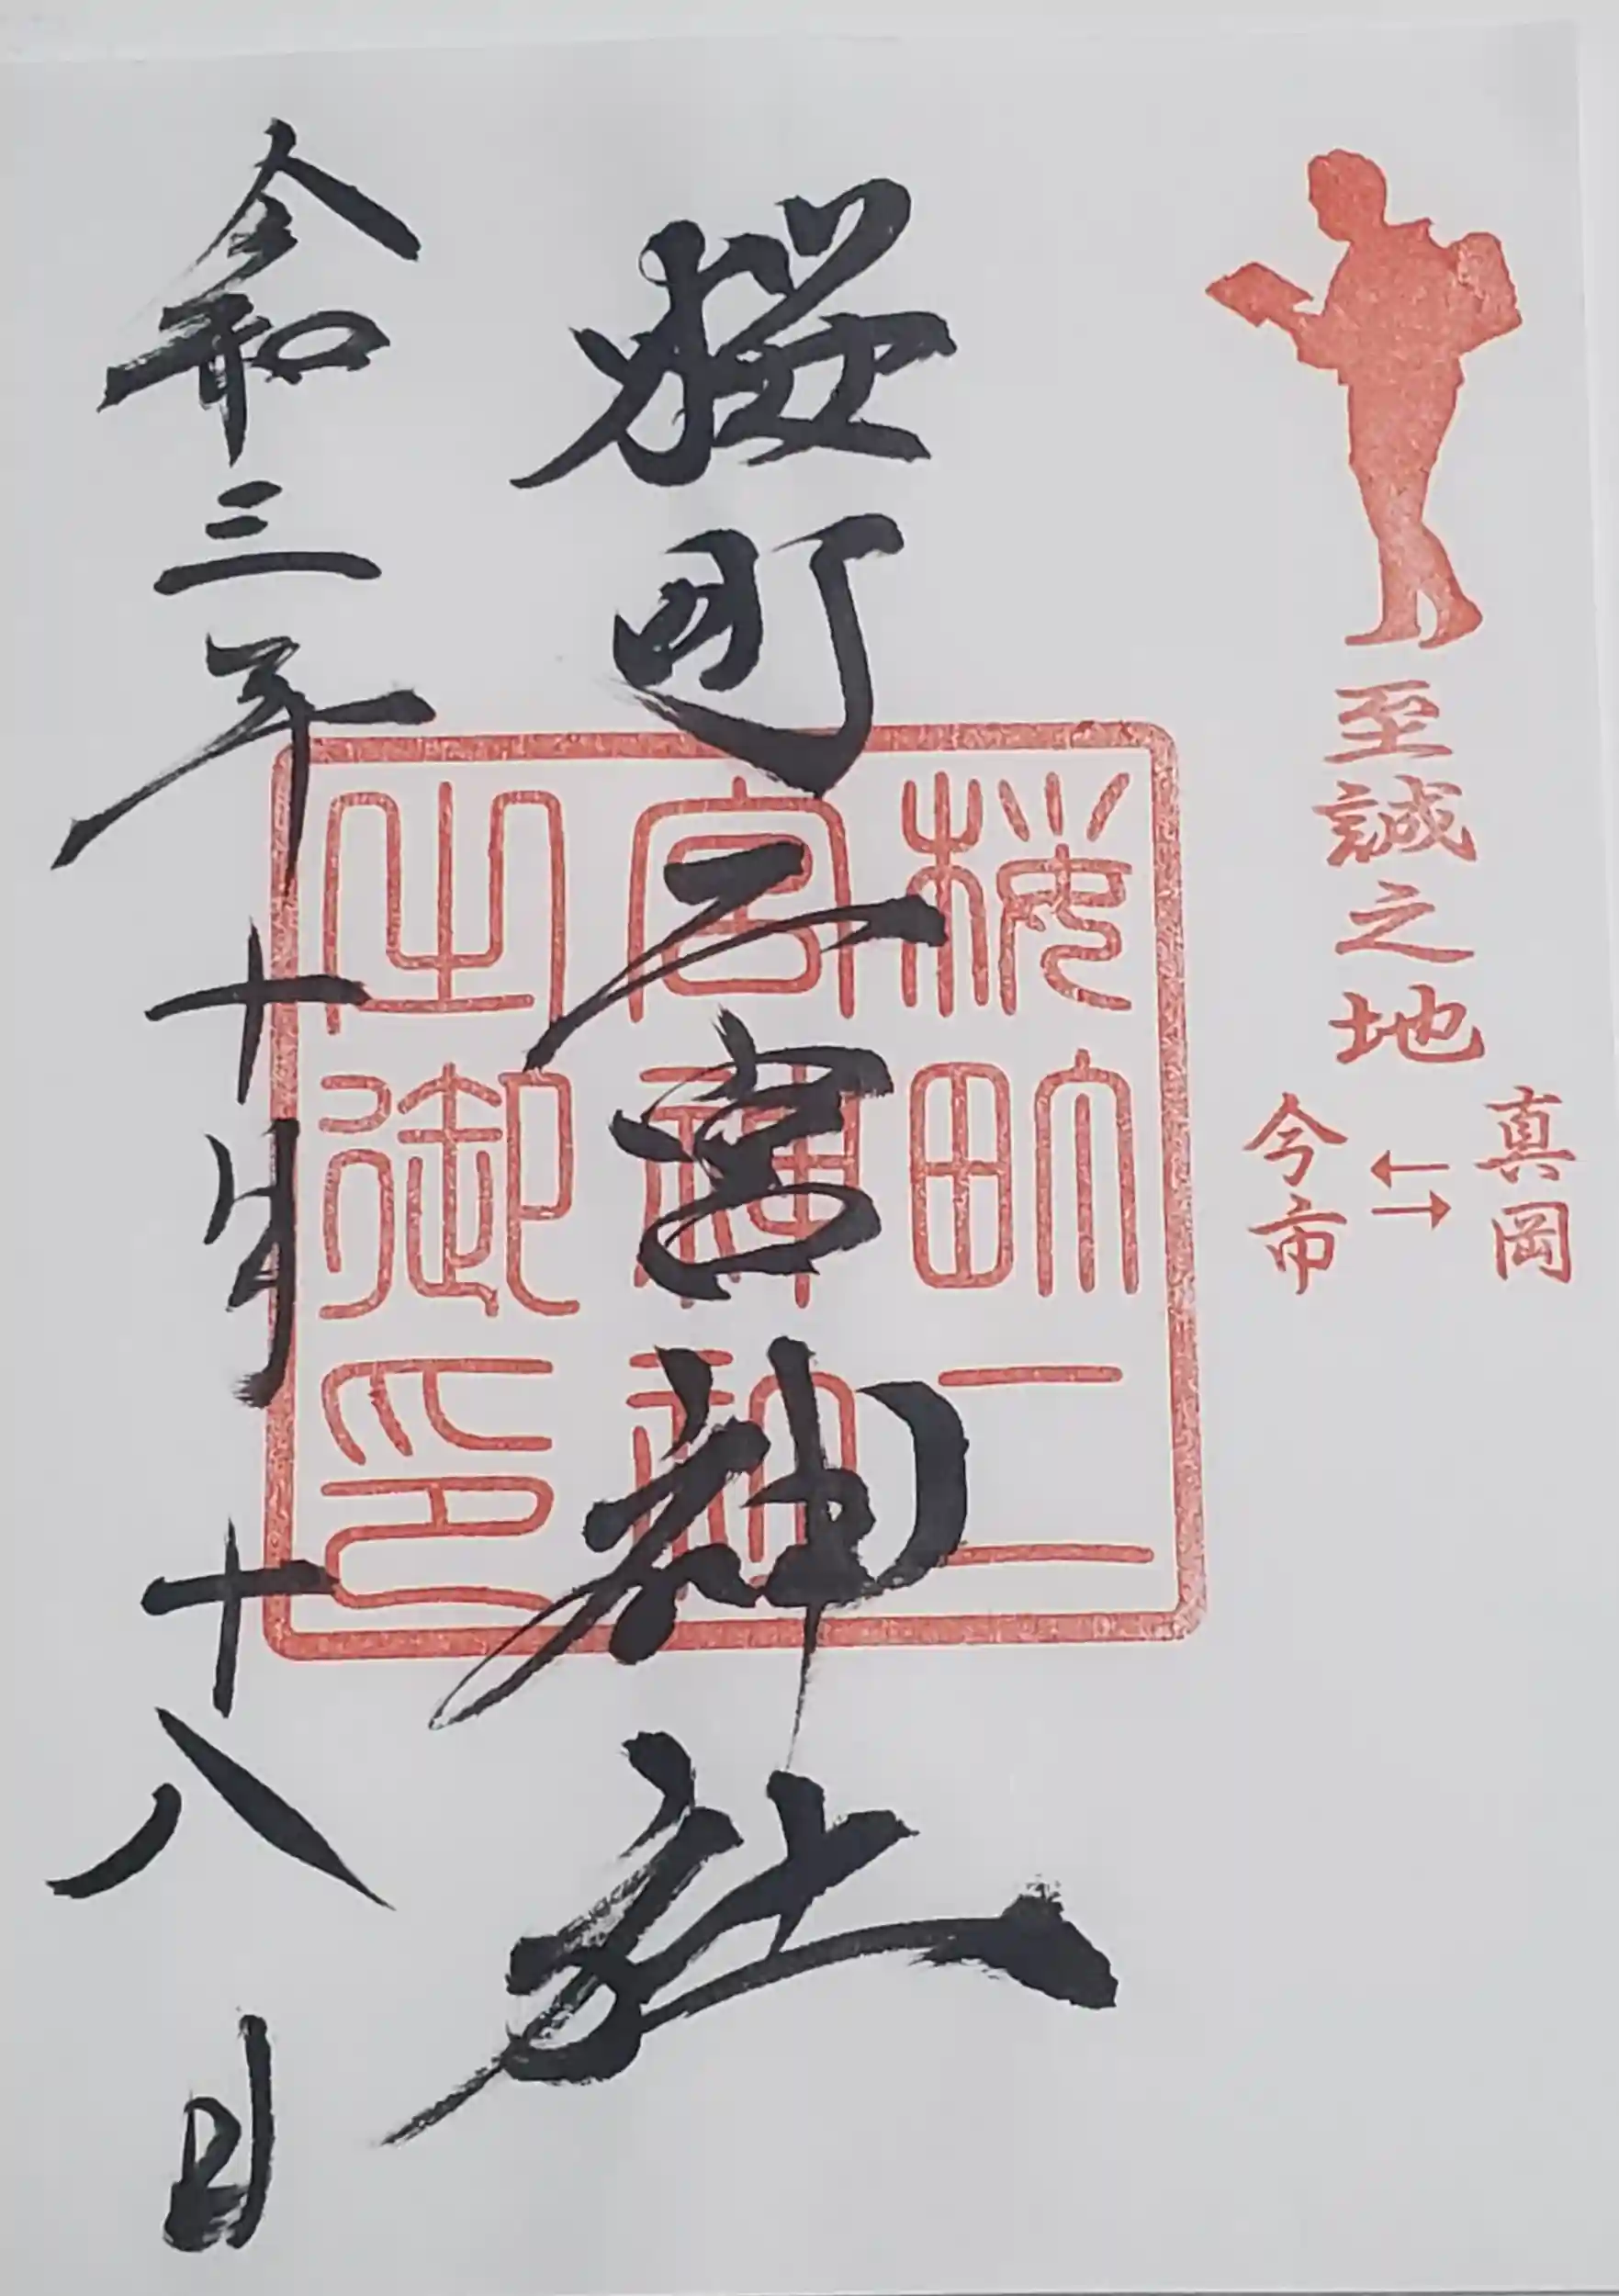 至誠之地
真岡
今市
桜町二宮神社
桜町二
宮神社
之御印
令和三年十月十八日